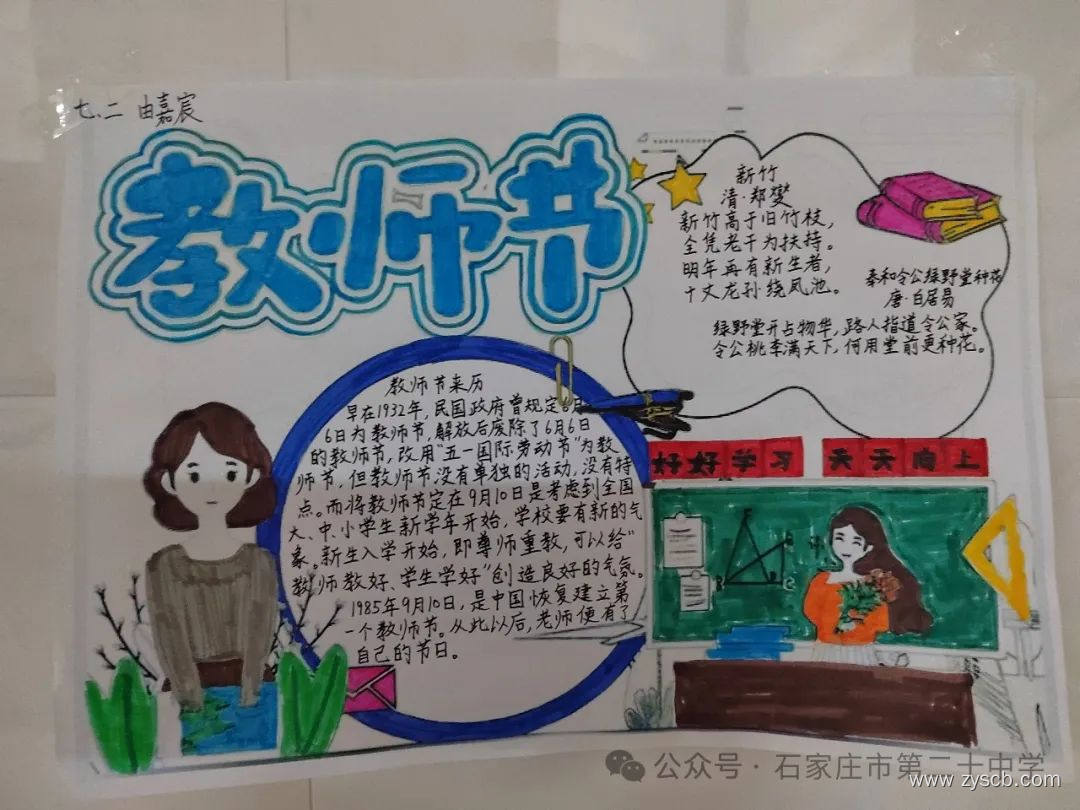 七.二 由嘉宸
教师节
新竹
清·郑燮
新竹高于旧竹枝，
全凭老干为扶持。
明年再有新生者，
十丈龙孙绕凤池。
奉和令公绿野堂种花
唐·白居易
绿野堂开占物华，路人指道令公家。
令公桃李满天下，何用堂前更种花。
教师节来历
早在1932年，民国政府曾规定6月
6日为教师节，解放后废除了6月6日
的教师节，改用“五一国际劳动节”为教
师节，但教师节没有单独的活动，没有特
点。而将教师节定在9月10日是考虑到全国
大、中、小学生新学年开始，学校要有新的气
象。新生入学开始，即尊师重教，可以给“
教师教好、学生学好”创造良好的气氛。
1985年9月10日，是中国恢复建立第
一个教师节。从此以后，老师便有了
自己的节日。
好好学习 天天向上
A
B
C
公众号·石家庄市第二十中学
www.zyscb.com